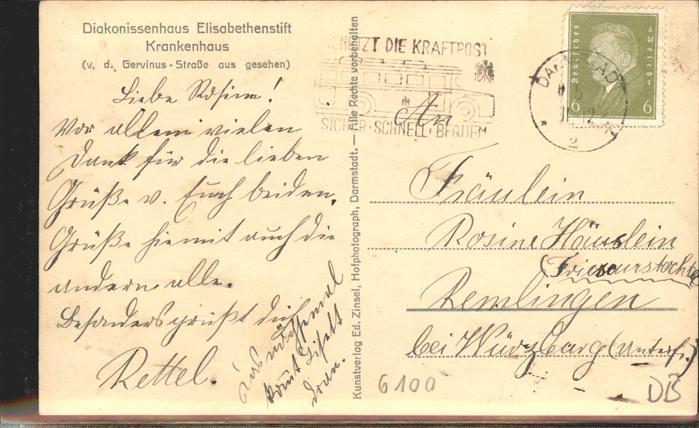 Diakonissenhaus Elisabethenstift
Krankenhaus
(v. d. Gervinus-Straße aus gesehen)
Liebe Rosine!
Vor allem vielen
Dank für die lieben
Grüße v. Euch beiden.
Grüße hiemit auch die
andern alle.
Besonders grüßt dich
Rettel.
nächstemal
kommt
dran.
Kunstverlag Ed. Zinsel, Hofphotograph, Darmstadt. — Alle Rechte vorbehalten
TZT DIE KRAFTPOST
SICHER · SCHNELL · BEQUEM
DARMSTADT
2
Deutsches Reich
6 6
An
Fräulein
Rosine Häuslein
(Friseurstochter)
Remlingen
bei Würzburg (Unterfr.)
6100
DB